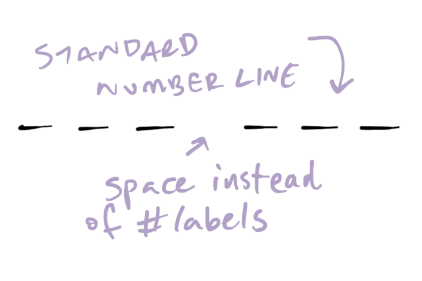 STANDARD
NUMBER LINE
space instead
of # labels